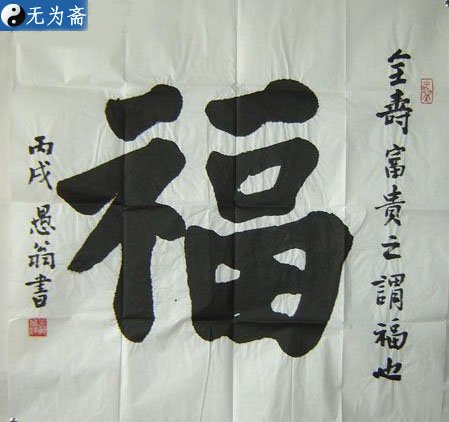 无为斋
全壽富貴之謂福也
福
丙戌愚翁書